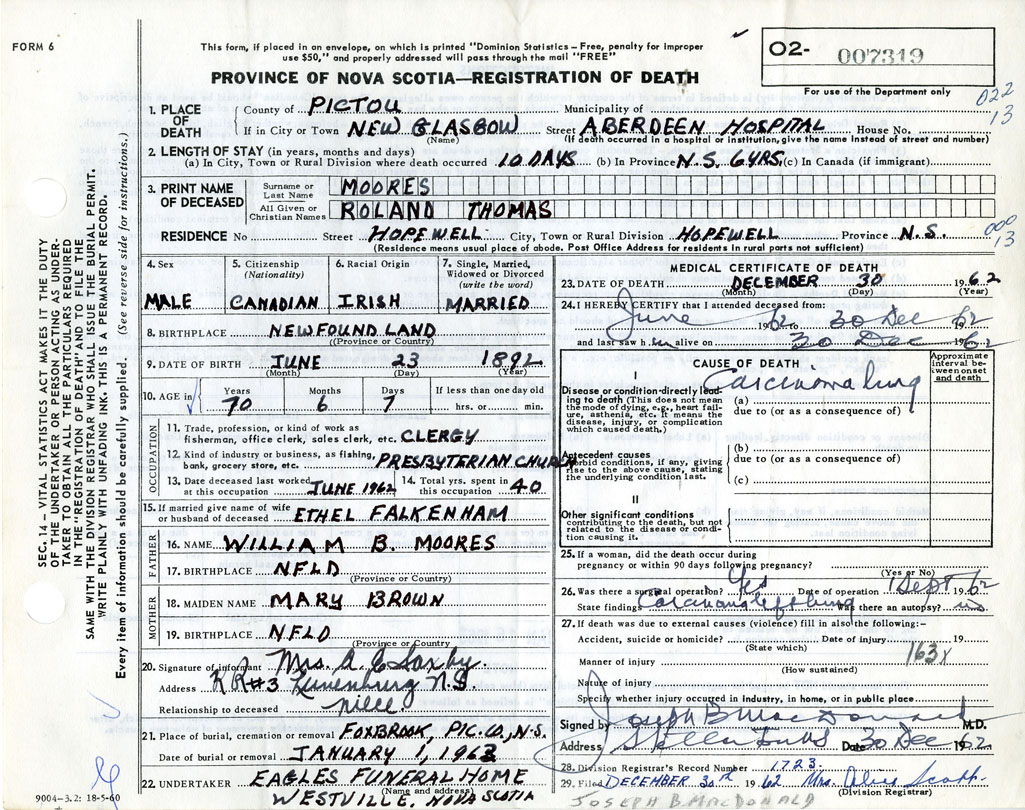 FORM 6
This form, if placed in an envelope, on which is printed "Dominion Statistics – Free, penalty for improper
use $50," and properly addressed will pass through the mail "FREE"
PROVINCE OF NOVA SCOTIA—REGISTRATION OF DEATH
O2- 007319
For use of the Department only
022
13
1. PLACE OF DEATH { County of PICTOU Municipality of
If in City or Town NEW GLASGOW Street ABERDEEN HOSPITAL House No.
(Name) (If death occurred in a hospital or institution, give the name instead of street and number)
2. LENGTH OF STAY (in years, months and days)
(a) In City, Town or Rural Division where death occurred 10 DAYS (b) In Province N.S. 6 YRS. (c) In Canada (if immigrant)
3. PRINT NAME OF DECEASED Surname or Last Name MOORES
All Given or Christian Names ROLAND THOMAS
RESIDENCE No Street HOPEWELL City, Town or Rural Division HOPEWELL Province N.S.
(Residence means usual place of abode. Post Office Address for residents in rural parts not sufficient)
000
13
4. Sex MALE
5. Citizenship (Nationality) CANADIAN
6. Racial Origin IRISH
7. Single, Married, Widowed or Divorced (write the word) MARRIED
8. BIRTHPLACE NEWFOUNDLAND
(Province or Country)
9. DATE OF BIRTH JUNE 23 1892
(Month) (Day) (Year)
10. AGE in { Years 70 Months 6 Days 7 If less than one day old
hrs. or min.
OCCUPATION
11. Trade, profession, or kind of work as
fisherman, office clerk, sales clerk, etc. CLERGY
12. Kind of industry or business, as fishing,
bank, grocery store, etc. PRESBYTERIAN CHURCH
13. Date deceased last worked at this occupation JUNE 1962 14. Total yrs. spent in this occupation 40
15. If married give name of wife
or husband of deceased ETHEL FALKENHAM
FATHER
16. NAME WILLIAM B. MOORES
17. BIRTHPLACE NFLD
(Province or Country)
MOTHER
18. MAIDEN NAME MARY BROWN
19. BIRTHPLACE NFLD
(Province or Country)
20. Signature of informant Mrs. A C Saxby.
Address RR#3 Lunenburg N.S.
Relationship to deceased niece
21. Place of burial, cremation or removal FOXBROOK, PIC. CO., N.S.
Date of burial or removal JANUARY 1, 1963
22. UNDERTAKER EAGLES FUNERAL HOME
(Name and address)
WESTVILLE, NOVA SCOTIA
MEDICAL CERTIFICATE OF DEATH
23. DATE OF DEATH DECEMBER 30 1962
(Month) (Day) (Year)
24. I HEREBY CERTIFY that I attended deceased from:
June 1962 to 30 Dec 1962
and last saw him alive on 30 Dec 1962
CAUSE OF DEATH
Approximate interval between onset and death
I
Disease or condition directly leading to death (This does not mean the mode of dying, e.g., heart failure, asthenia, etc. It means the disease, injury, or complication which caused death.)
(a) Carcinoma lung
due to (or as a consequence of)
Antecedent causes
Morbid conditions, if any, giving rise to the above cause, stating the underlying condition last.
(b)
due to (or as a consequence of)
(c)
II
Other significant conditions
contributing to the death, but not related to the disease or condition causing it.
25. If a woman, did the death occur during
pregnancy or within 90 days following pregnancy?
(Yes or No)
26. Was there a surgical operation? Yes Date of operation 1 Sept 1962
State findings Carcinoma left lung Was there an autopsy? no
27. If death was due to external causes (violence) fill in also the following:-
Accident, suicide or homicide? Date of injury 19
(State which)
163X
Manner of injury
(How sustained)
Nature of injury
Specify whether injury occurred in industry, in home, or in public place
Signed by Joseph B MacDonald M.D.
Address Stellarton Date 30 Dec 1962
28. Division Registrar's Record Number 1723
29. Filed DECEMBER 30th 1962 Mrs. Alice Scott
(Division Registrar)
JOSEPH B. MACDONALD
SEC. 14 — VITAL STATISTICS ACT MAKES IT THE DUTY
OF THE UNDERTAKER OR PERSON ACTING AS UNDER-
TAKER TO OBTAIN ALL THE PARTICULARS REQUIRED
IN THE "REGISTRATION OF DEATH" AND TO FILE THE
SAME WITH THE DIVISION REGISTRAR WHO SHALL ISSUE THE BURIAL PERMIT.
WRITE PLAINLY WITH UNFADING INK. THIS IS A PERMANENT RECORD.
Every item of information should be carefully supplied. (See reverse side for instructions.)
9004-3.2: 18-5-60